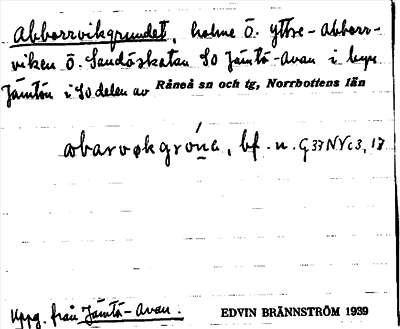 Abborrvikgrundet, holme Ö. Yttre-Abborr-
viken Ö. Sandöskatan SO Jämtö-Avan i byn
Jämtön i SO delen av Råneå sn och tg, Norrbottens län
abarvøkgrόna, bf. n. G33NVc3, 17
Uppg. från Jämtö-Avan.
EDVIN BRÄNNSTRÖM 1939